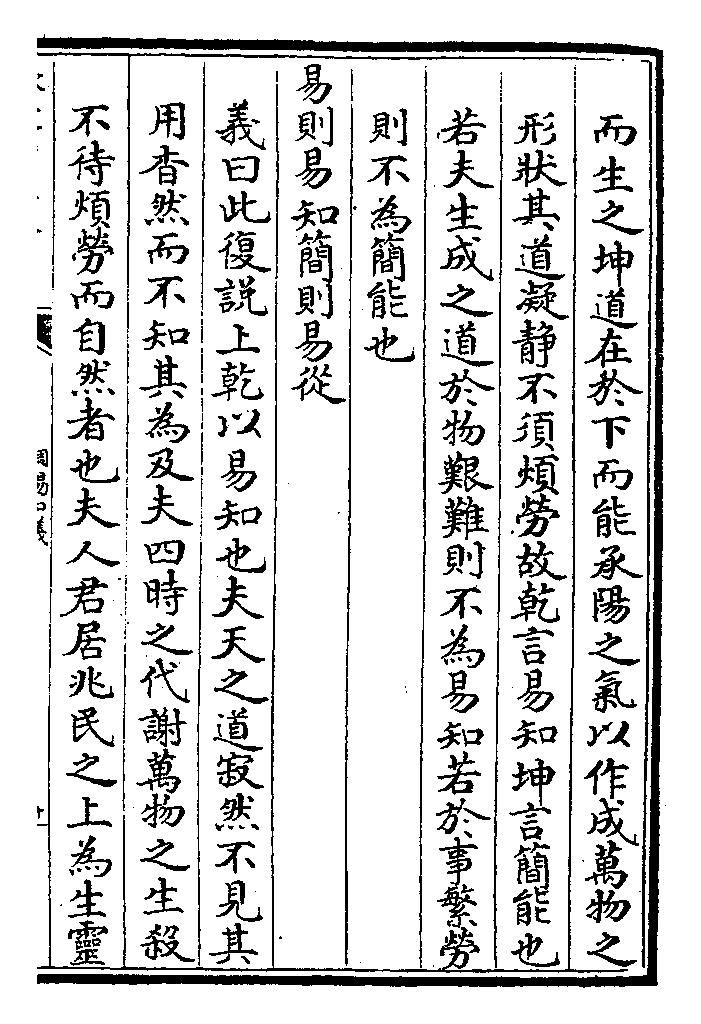 而生之坤道在於下而能承陽之氣以作成萬物之
形狀其道凝静不須煩勞故乾言易知坤言簡能也
若夫生成之道於物艱難則不為易知若於事繁勞
則不為簡能也
易則易知簡則易從
義曰此復説上乾以易知也夫天之道寂然不見其
用杳然而不知其為及夫四時之代謝萬物之生殺
不待煩勞而自然者也夫人君居兆民之上為生靈